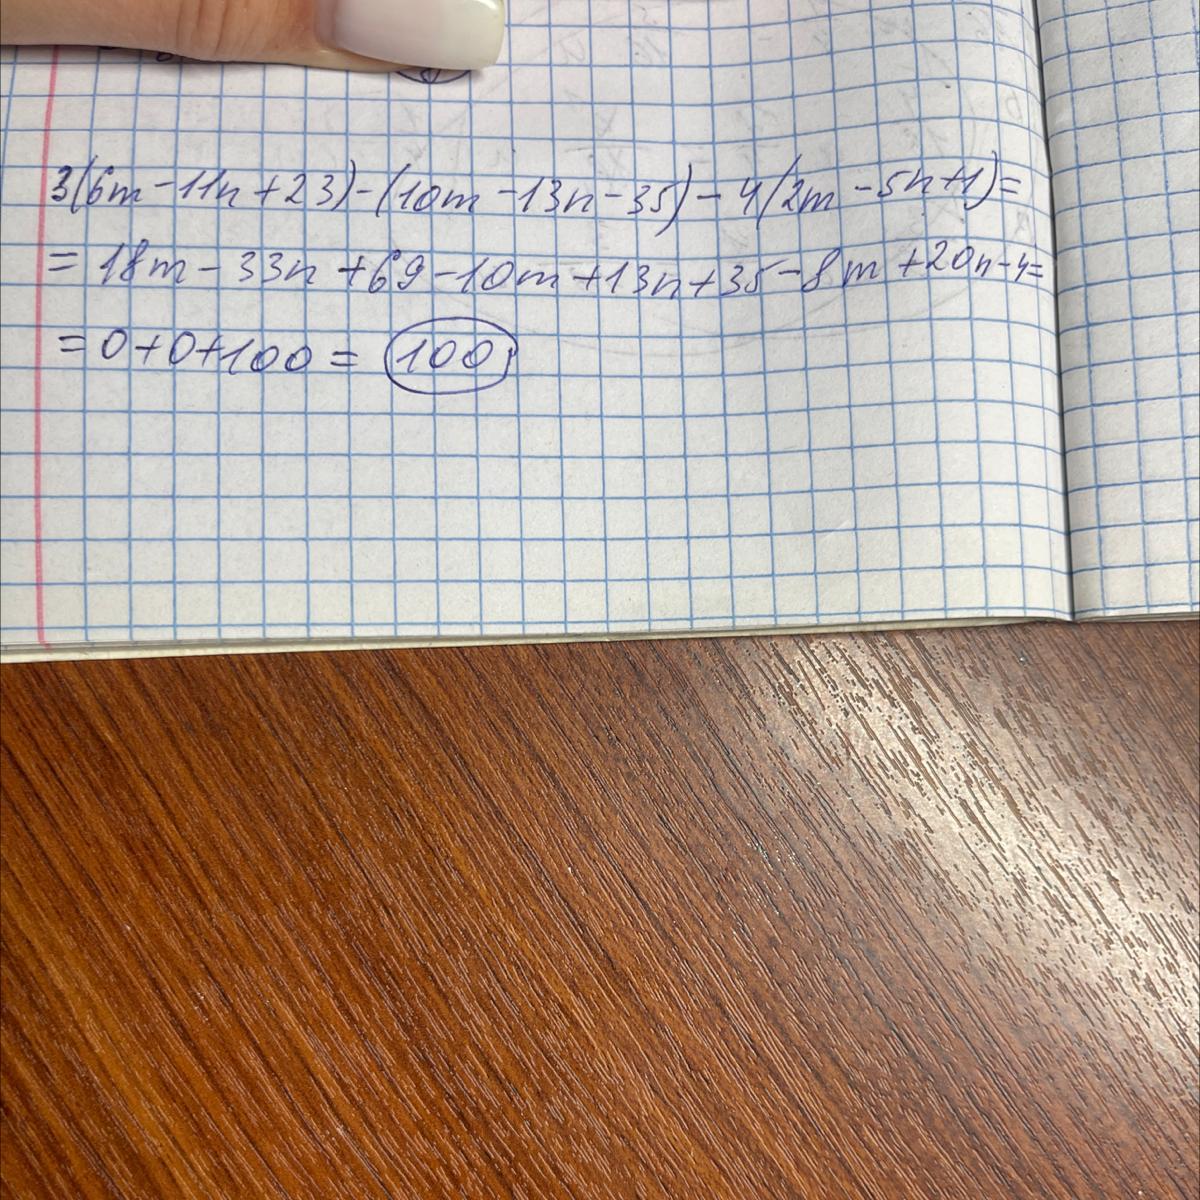 3(6m-11n+23)-(10m-13n-35)-4(2m-5n+1)=
=18m-33n+69-10m+13n+35-8m+20n-4=
=0+0+100=100